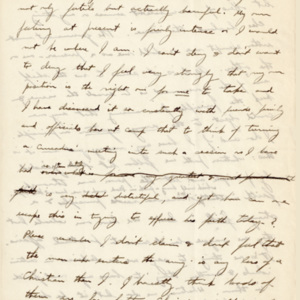 not only futile but actually harmful. My own
feeling at present is fairly intense or I would
not be where I am. I can't deny & don't want
to deny that I feel very strongly that my own
position is the right one for me to take and
I have discussed it so constantly with friends family
and officials here at camp that to think of turning
a meeting into such a session as I have
had
is my distasteful, and yet how can we
escape this in trying to appraise his path today?
Please remember I don't claim & don't feel that
the man who enters the army is any less of a
Christian than I. I honestly think loads of
them